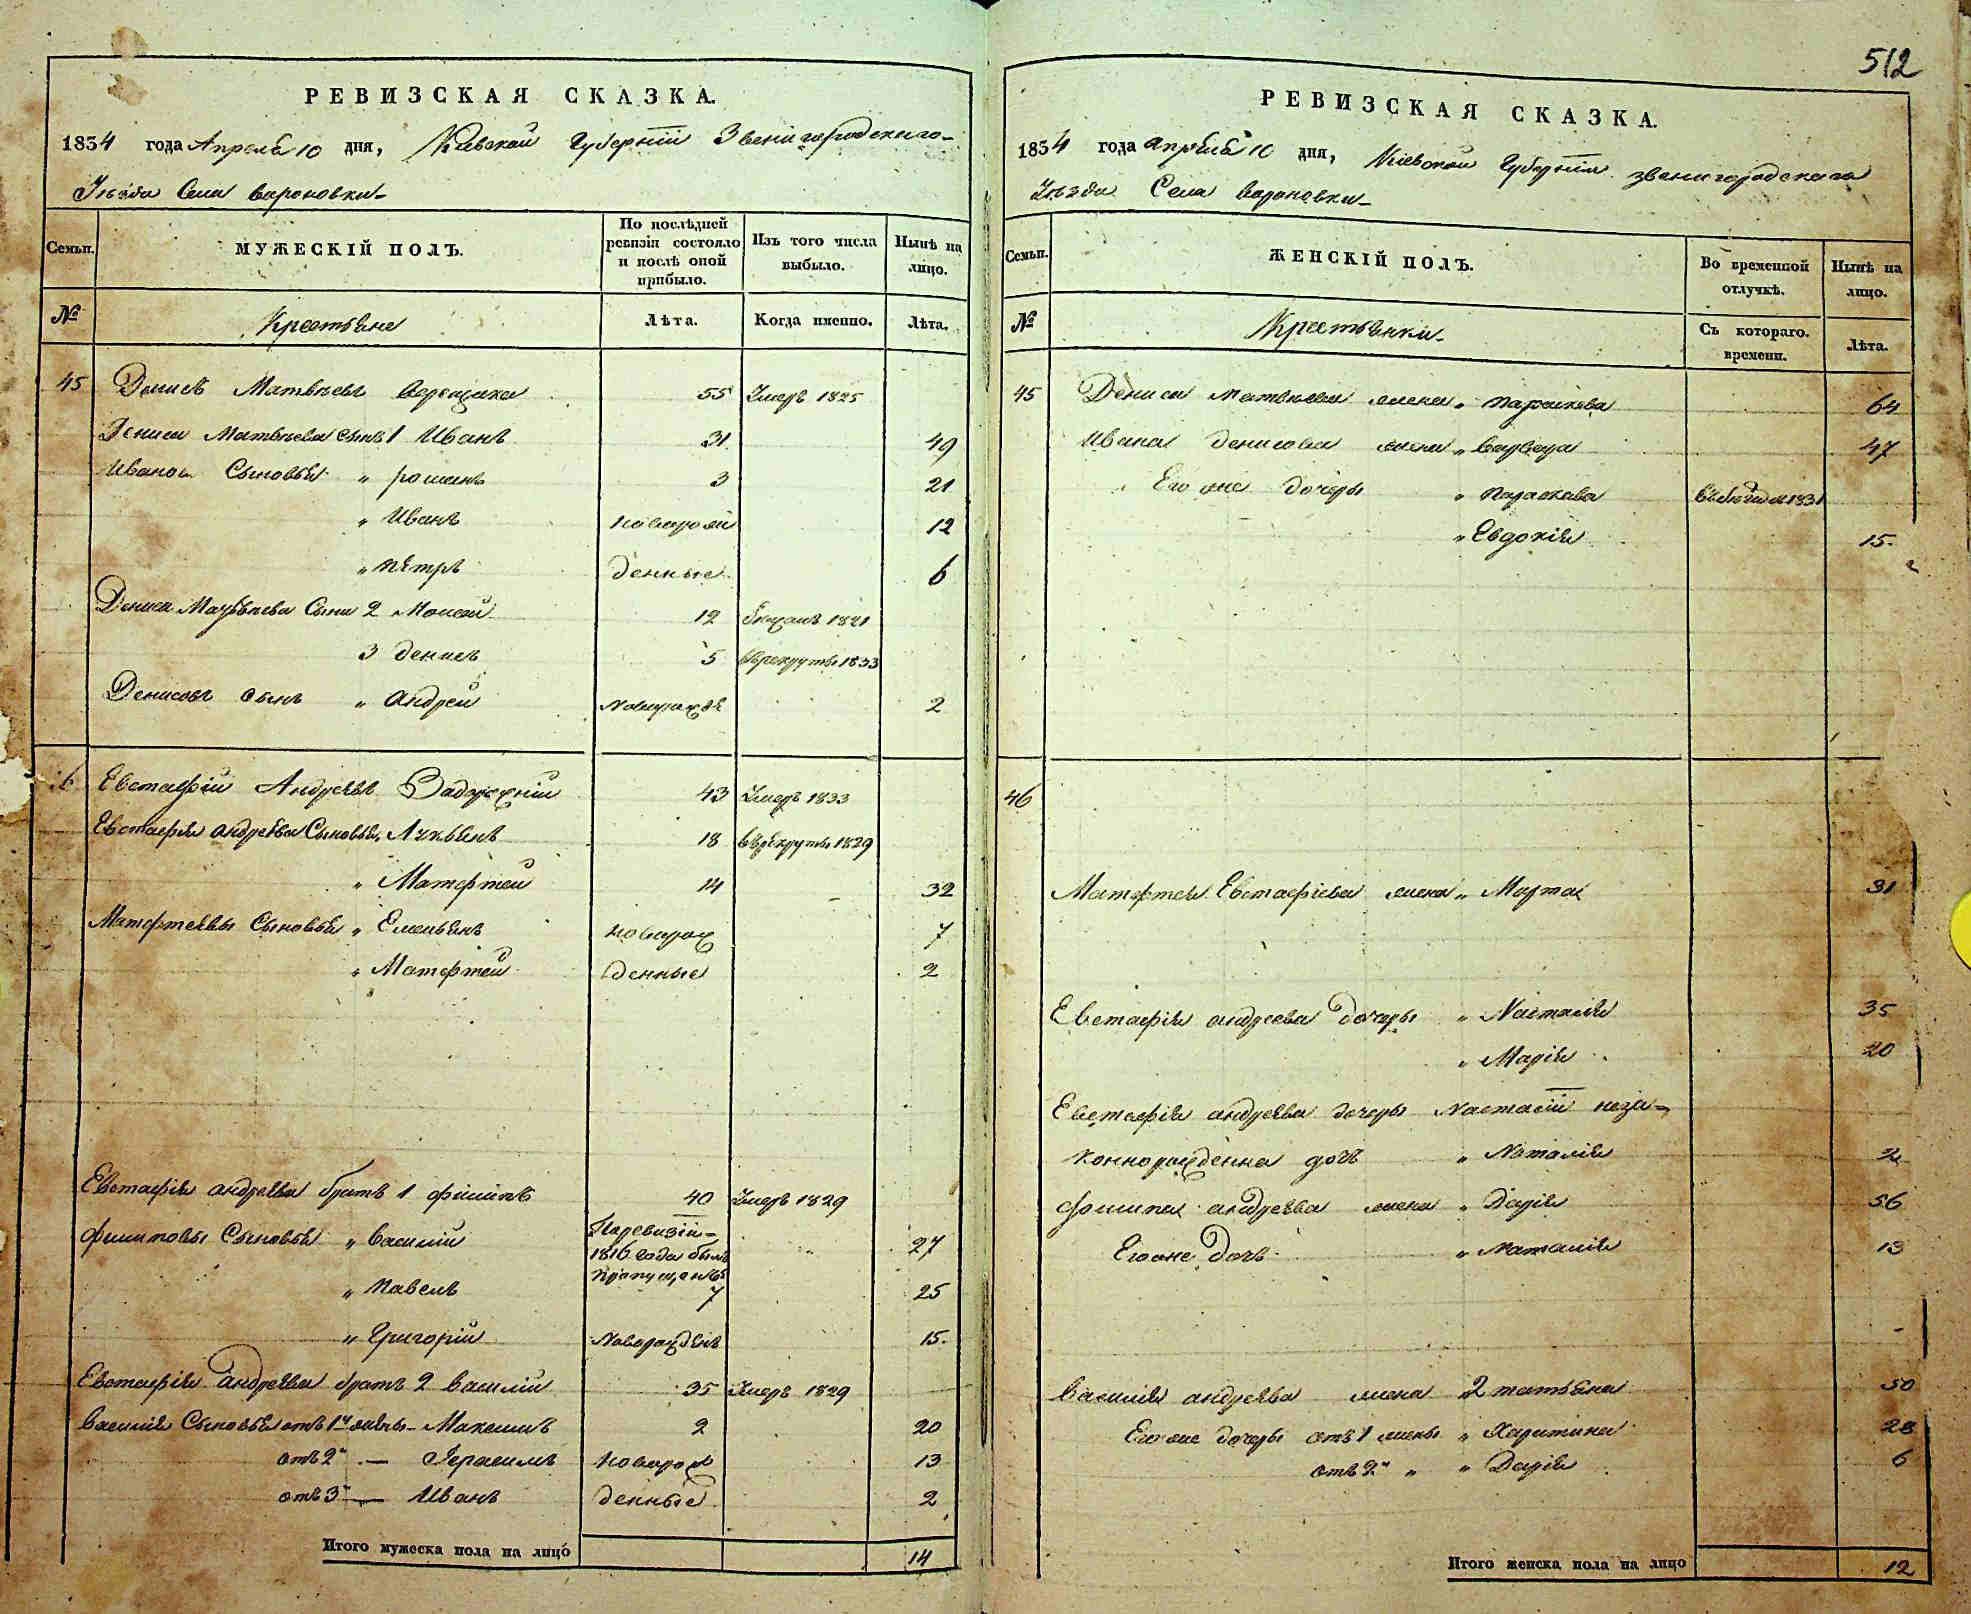 512
РЕВИЗСКАЯ СКАЗКА.
1834 года Апреля 10 дня, Киевской Губернїи Звенигородскаго
Уезда Села Вороновки
Семьи.
МУЖЕСКІЙ ПОЛЪ.
По послѣдней ревизіи состояло и послѣ оной прибыло.
Изъ того числа выбыло.
Нынѣ на лицо.
№
Крестьяне
Лѣта.
Когда именно.
Лѣта.
45 Денисъ Матвѣевъ 55 Умеръ 1825
Дениса Матвѣева сынъ 1 Иванъ 31 49
Ивана Сыновья " романъ 3 21
" Иванъ новорож 12
" Пётръ денные 6
Дениса Матвѣева Сыны 2 Моисей 12 1821
3 денисъ 5 врекруты 1833
Денисовъ сынъ " Андрей Новорожде 2
6 Евстафій Андреевъ 43 Умеръ 1833
Евстафія андреева Сыновья Лукьянъ 18 врекруты 1829
" Матфтей 14 32
Матфтеявы Сыновья " Емельянъ новорож 7
" Матфтей денные 2
Евстафія андреева братъ 1 филипъ 40 Умеръ 1829
филиповы Сыновья " Василій Поревизіи 1816 года былъ пропущенъ 27
" Павелъ 7 25
" Григорій Новорожденъ 15.
Евстафія андреева братъ 2 василій 35 Умеръ 1829
василія Сыновья отъ 1й жены Максимъ 2 20
отъ 2й — Герасимъ новорож 13
отъ 3й — Иванъ денные 2
Итого мужеска пола на лицо 14
РЕВИЗСКАЯ СКАЗКА.
1834 года апреля 10 дня, Кіевской Губерніи звенигородскаго
Уезда Села Вороновки
Семьи.
ЖЕНСКІЙ ПОЛЪ.
Во временной отлучкѣ.
Нынѣ на лицо.
№
Крестьянки
Съ котораго. времени.
Лѣта.
45 Дениса матвѣева жена " параскева 64
Ивана денисова жена " варвара 47
Его же дочеры " параскева 1831
" Евдокія 15.
46
Матфтея Евстафіева жена " Марта 31
Евстафія андреева дочеры " Настасія 35
" Марія 20
Евстафія андреева дочеры Настасіи неза-
коннорожденна дочь " Наталія 2
филипа андреева жена " Дарія 56
Его же Дочь " Наталія 13
василія андреева жена 2 татьяна 50
Его же дочеры отъ 1 жены " Харитина 28
отъ 2й " " Дарія 6
Итого женска пола на лицо 12